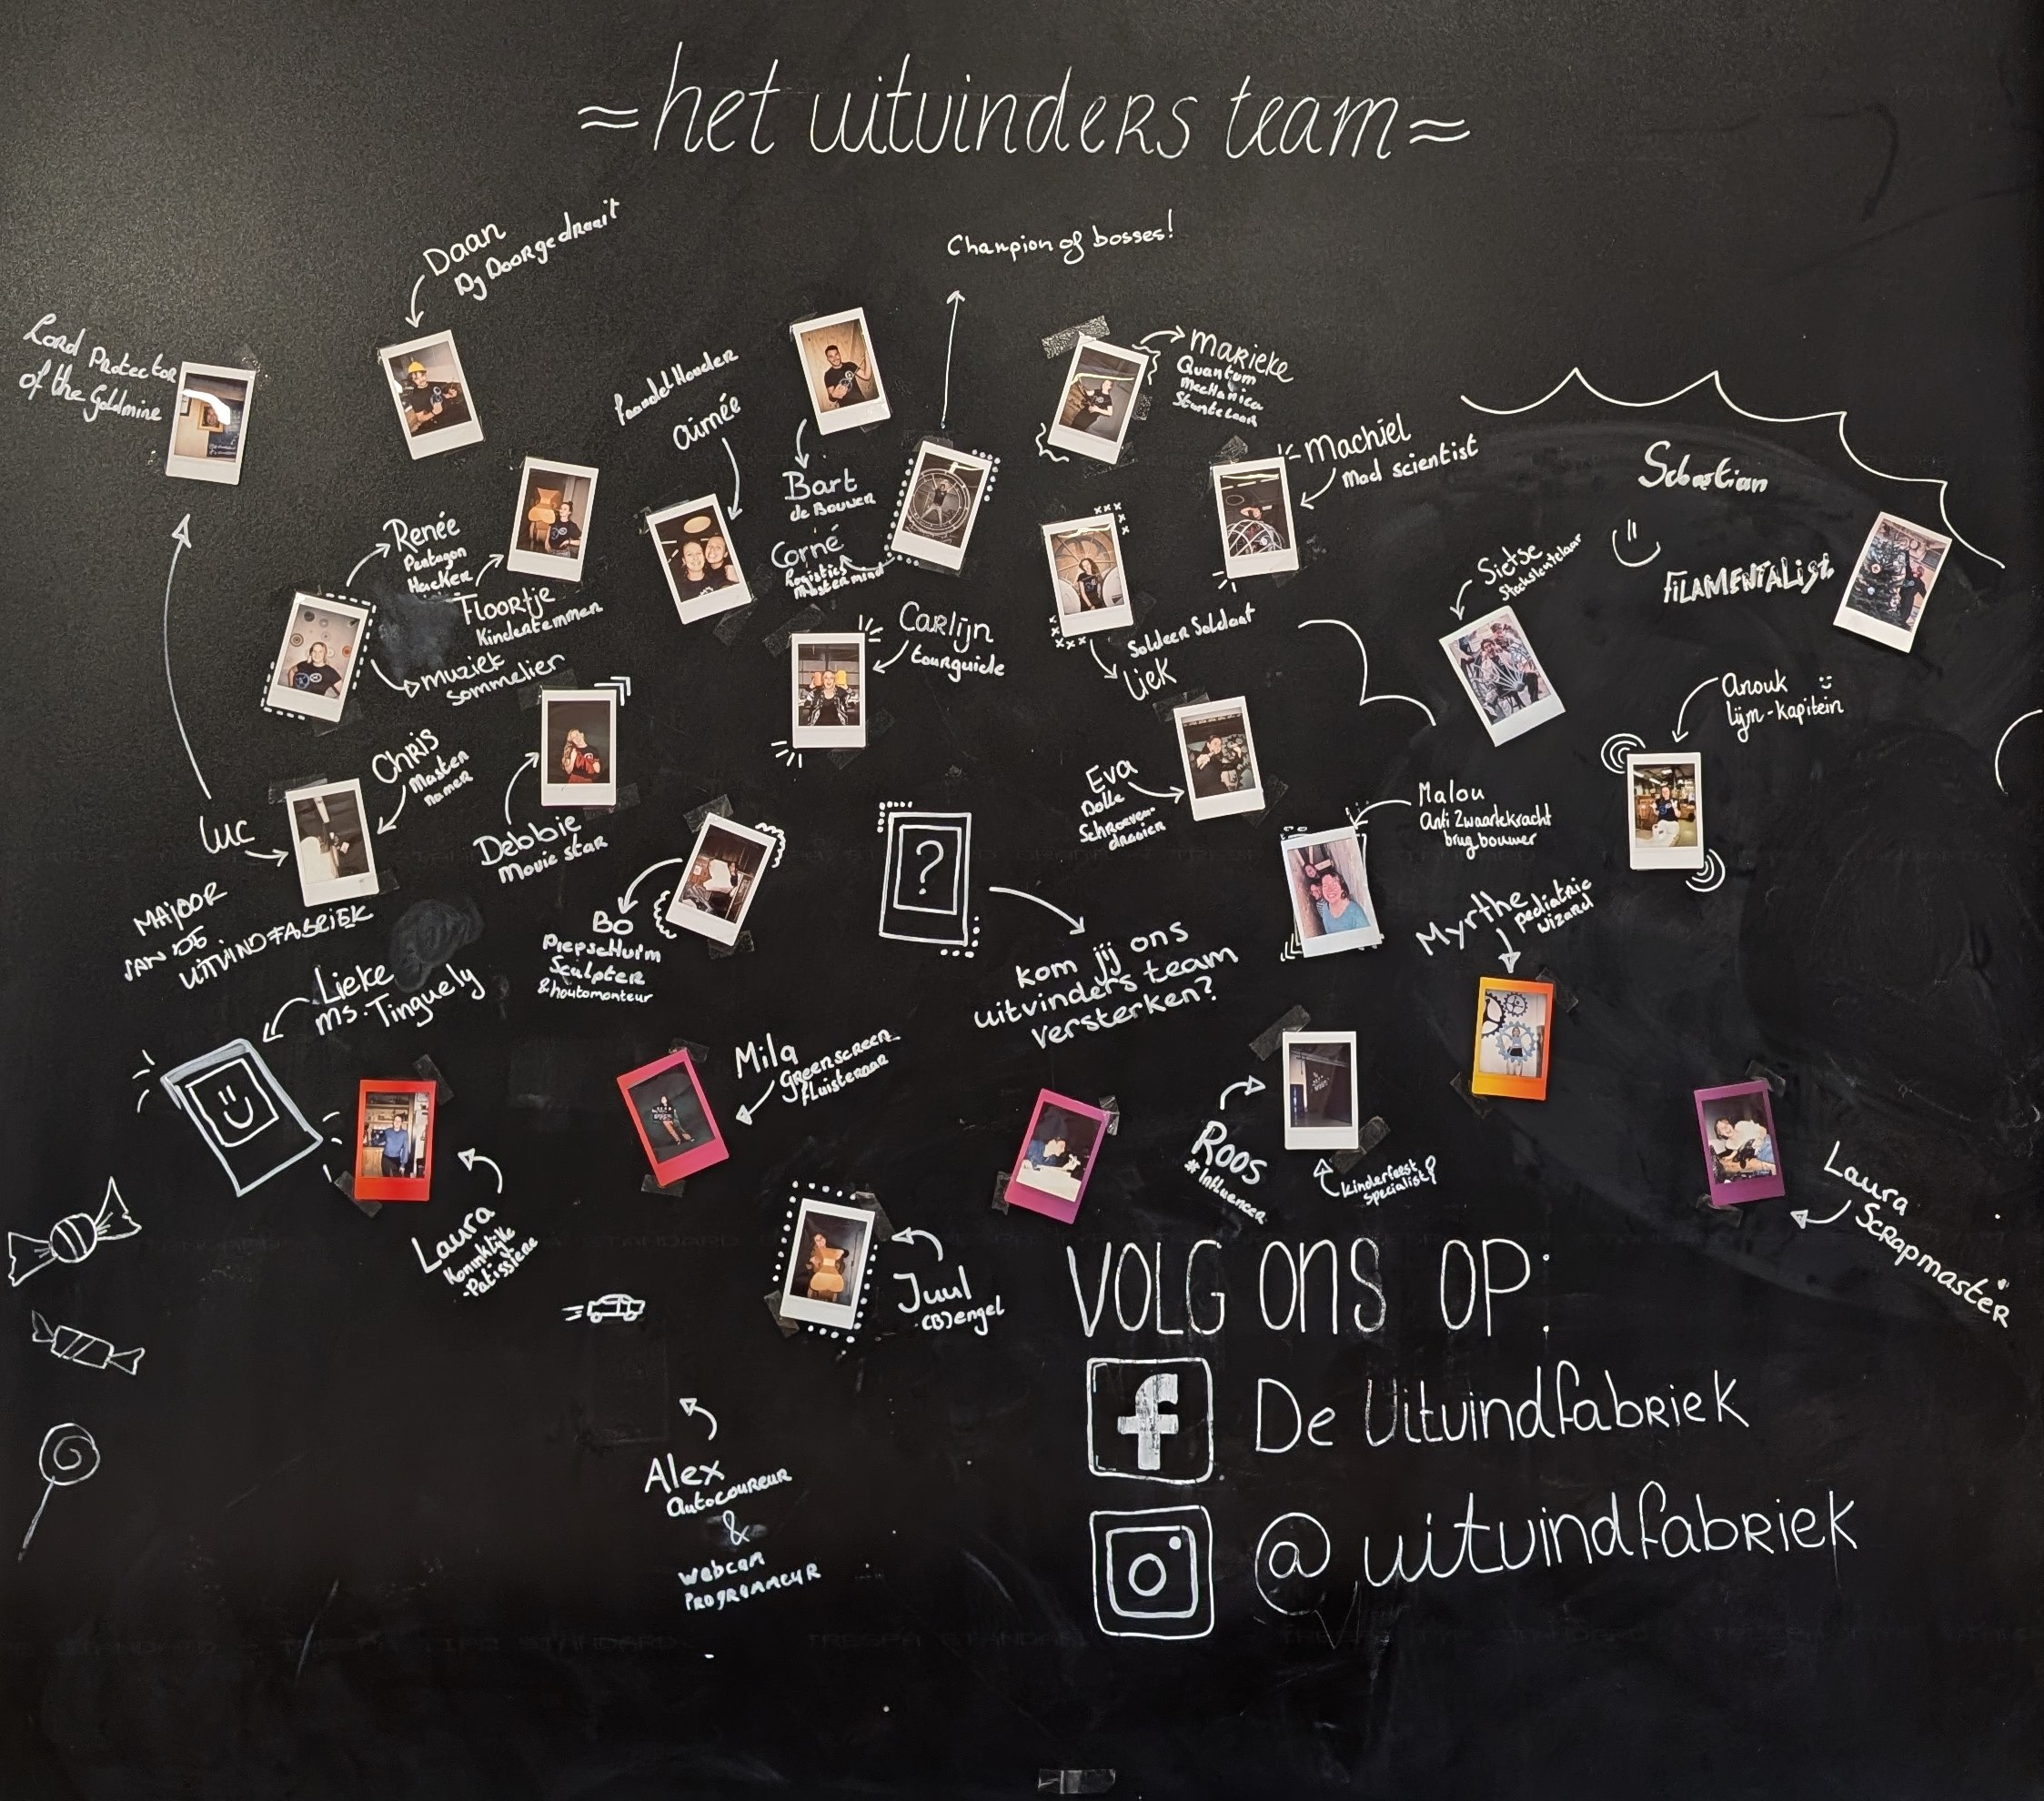 ≈het uitvinders team≈
Daan
Dj Doorgedraait
Champion of bosses!
Lord Protector
of the Goldmine
Aimée
Marieke
Quantum
Mechanica
Stuntelaar
Bart
de Bouwer
Machiel
Mad scientist
Sebastian
FILAMENTALIST
Corné
Logistics
Mastermind
Renée
Pentagon
Hacker
Floortje
Kindertemmer
Muziek
Sommelier
Sietse
Carlijn
tourguide
Soldeer Soldaat
Liek
Anouk
lijm-kapitein
Chris
Master
namer
Luc
Debbie
Movie star
Eva
Dolle
Schroeven-
draaier
Malou
Anti Zwaartekracht
brugbouwer
MAJOOR
VAN DE
UITVINDFABRIEK
Bo
Piepschuim
Sculpter
& houtmonteur
?
kom jij ons
uitvinders team
versterken?
Myrthe
pediatric
wizard
Lieke
Ms. Tinguely
Mila
Greenscreen
fluisteraar
Roos
#Influencer
Kinderfeest
specialist
Laura
Koninklijke
-Patissiere
Laura
Scrapmaster
Juul
(B)engel
VOLG ONS OP:
f De Uitvindfabriek
@uitvindfabriek
Alex
Autocoureur
&
webcam
PROGRAMMEUR